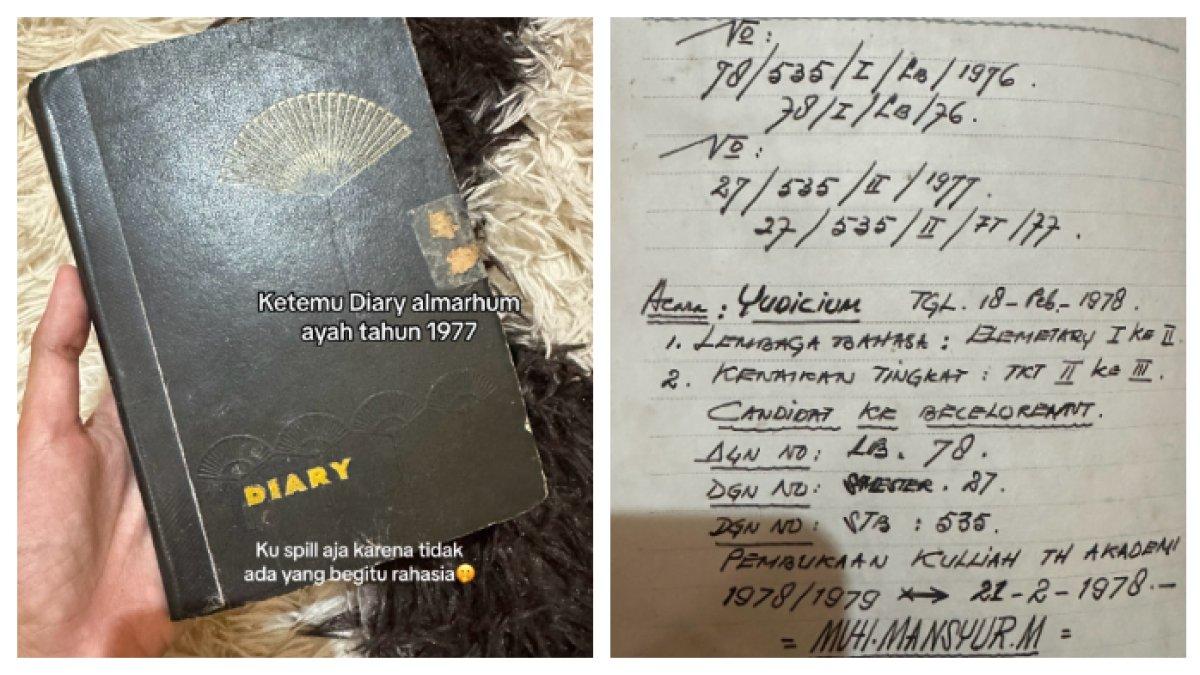 Ketemu Diary almarhum
ayah tahun 1977
DIARY
Ku spill aja karena tidak
ada yang begitu rahasia🤭
No :
78/535/I/LB/1976.
78/I/LB/76.
No :
27/535/II/1977.
27/535/II/TT/77.
Acara : YUDICIUM TGL. 18-Feb-1978.
1. LEMBAGA BAHASA : ELEMETARY I KE II
2. KENAIKAN TINGKAT : TKT II KE III.
CANDIDAT KE BECELOREAAT.
DGN NO: LB. 78.
DGN NO: SMESTER. 27.
DGN NO: STB : 535.
PEMBUKAAN KULLIAH TH AKADEMI
1978/1979 21-2-1978.-
= MUH.MANSYUR.M =